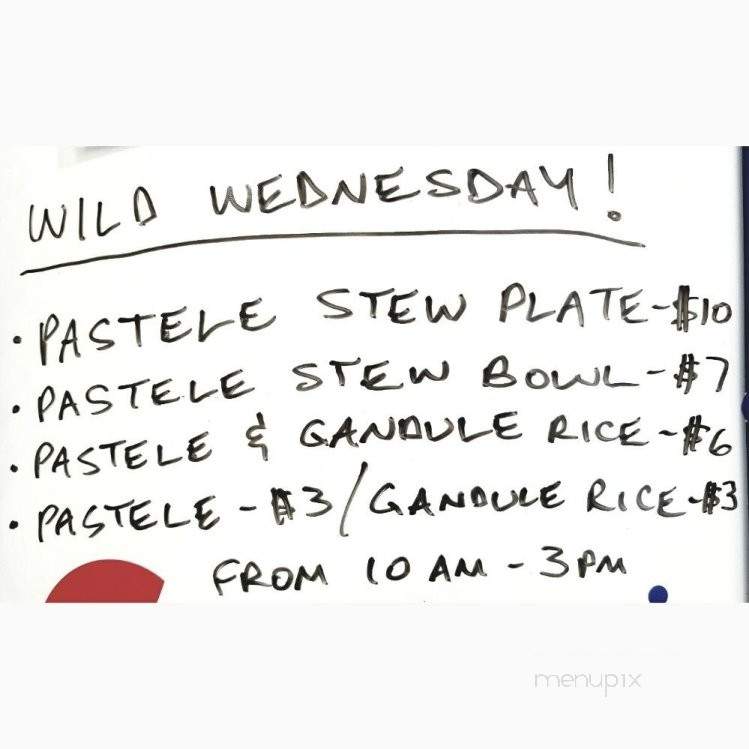 WILD WEDNESDAY!
• PASTELE STEW PLATE - $10
• PASTELE STEW BOWL - $7
• PASTELE & GANDULE RICE - $6
• PASTELE - $3 / GANDULE RICE - $3
FROM 10 AM - 3 PM
menupix